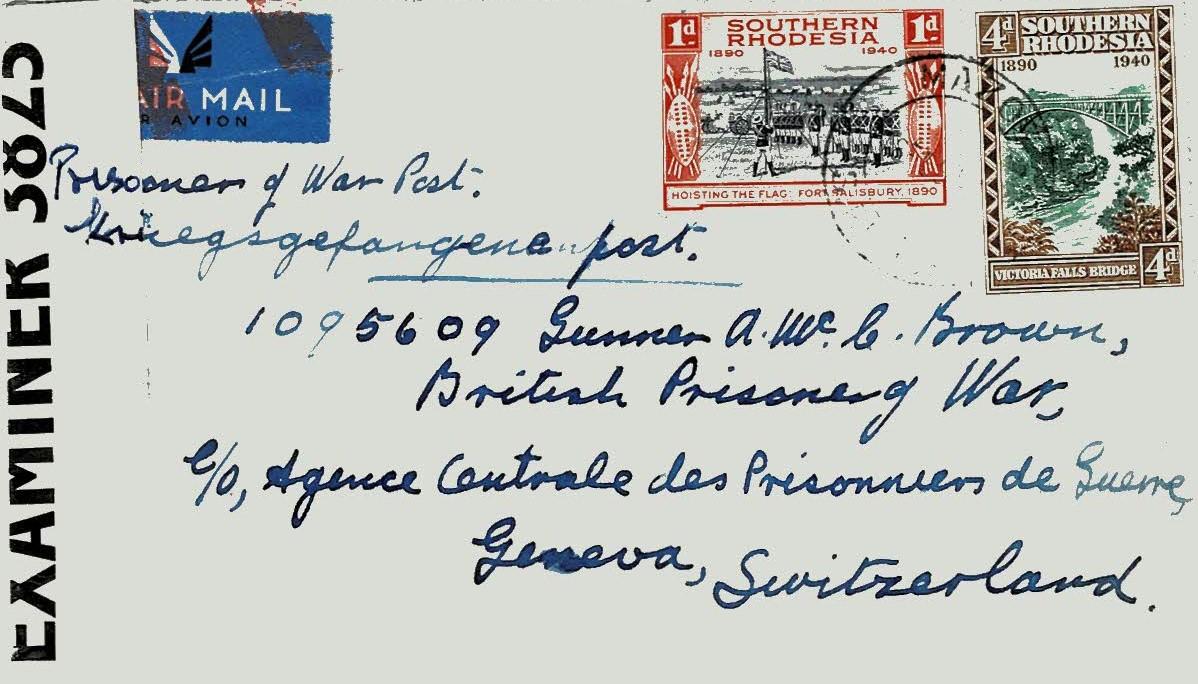 EXAMINER 3825
AIR MAIL
R AVION
1d
SOUTHERN
RHODESIA
1d
1890 1940
HOISTING THE FLAG: FORT SALISBURY, 1890
4d
SOUTHERN
RHODESIA
1890 1940
VICTORIA FALLS BRIDGE
4d
Prisoner of War Post.
Kriegsgefangenenpost.
1095609 Gunner A. Mc. C. Brown,
British Prisoner of War,
C/o, Agence Centrale des Prisonniers de Guerre,
Geneva, Switzerland.